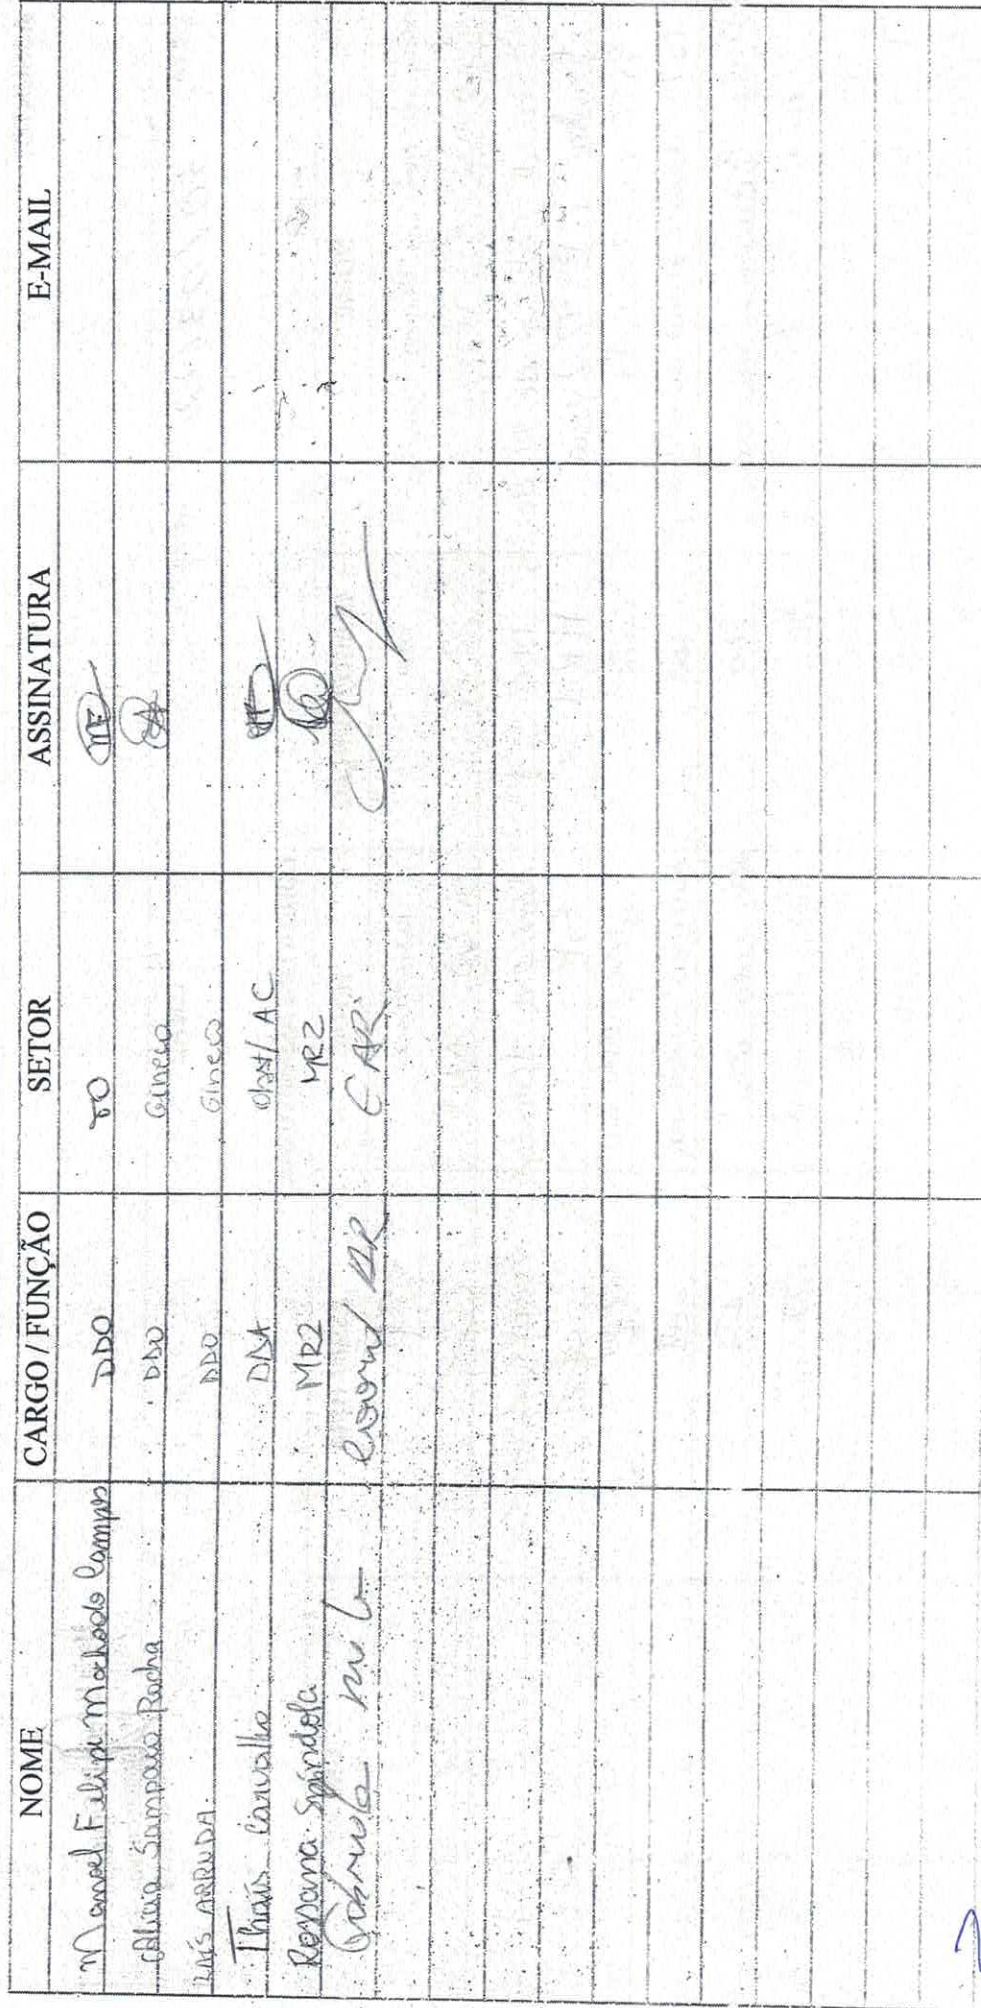 NOME CARGO / FUNÇÃO SETOR ASSINATURA E-MAIL
Manoel Felipe Machado Campos DDO TO
Alicia Sampaio Rocha DDO Gineco
LAÍS ARRUDA DDO Gineco
Thaís Carvalho DDA Obst/AC
Rossana Spíndola MR2 MR2
AR